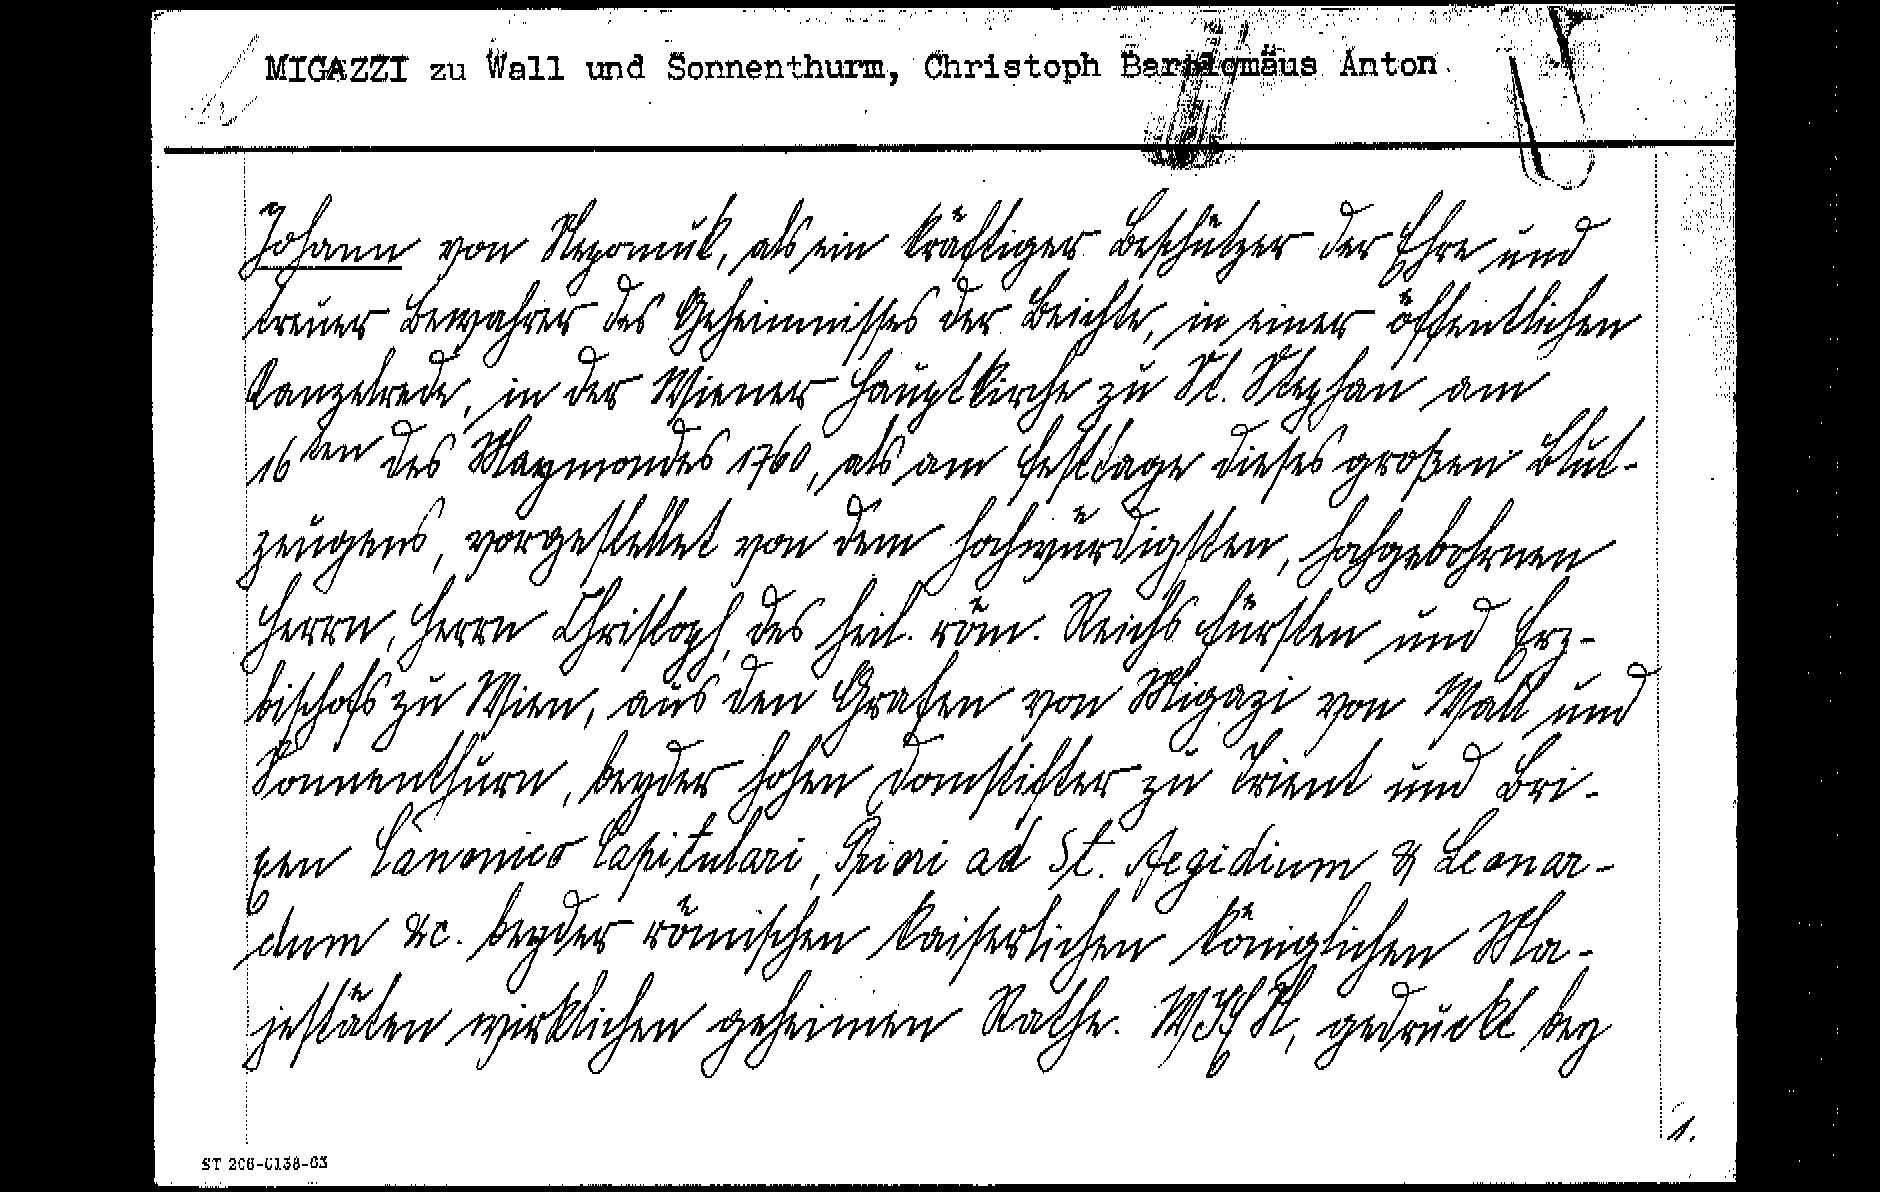 MIGAZZI zu Wall und Sonnenthurm, Christoph Bartolomäus Anton
Johann von Nepomuk, als ein kräftiger Beschützer der Ehre und
treuer Bewahrer des Geheimnisses der Beichte, in einer öffentlichen
Kanzelrede, in der Wiener Hauptkirche zu St. Stephan am
16ten des Maymondes 1760, als am Festtage dieses großen Blut-
zeugens, vorgestellet von dem hochwürdigsten, hochgebohrnen
Herrn, Herrn Christoph, des heil. röm. Reichs Fürsten und Erz-
bischofs zu Wien, aus den Grafen von Migazi von Wall und
Sonnenthurn, beyder hohen Domstifter zu Trient und Bri-
xen Canonico Capitulari, Priori ad St. Aegidium & Leonar-
dum &c. beyder römischen kaiserlichen königlichen Ma-
jestäten wirklichen geheimen Rathe. WJEN, gedruckt bey
1.
ST 206-0138-03